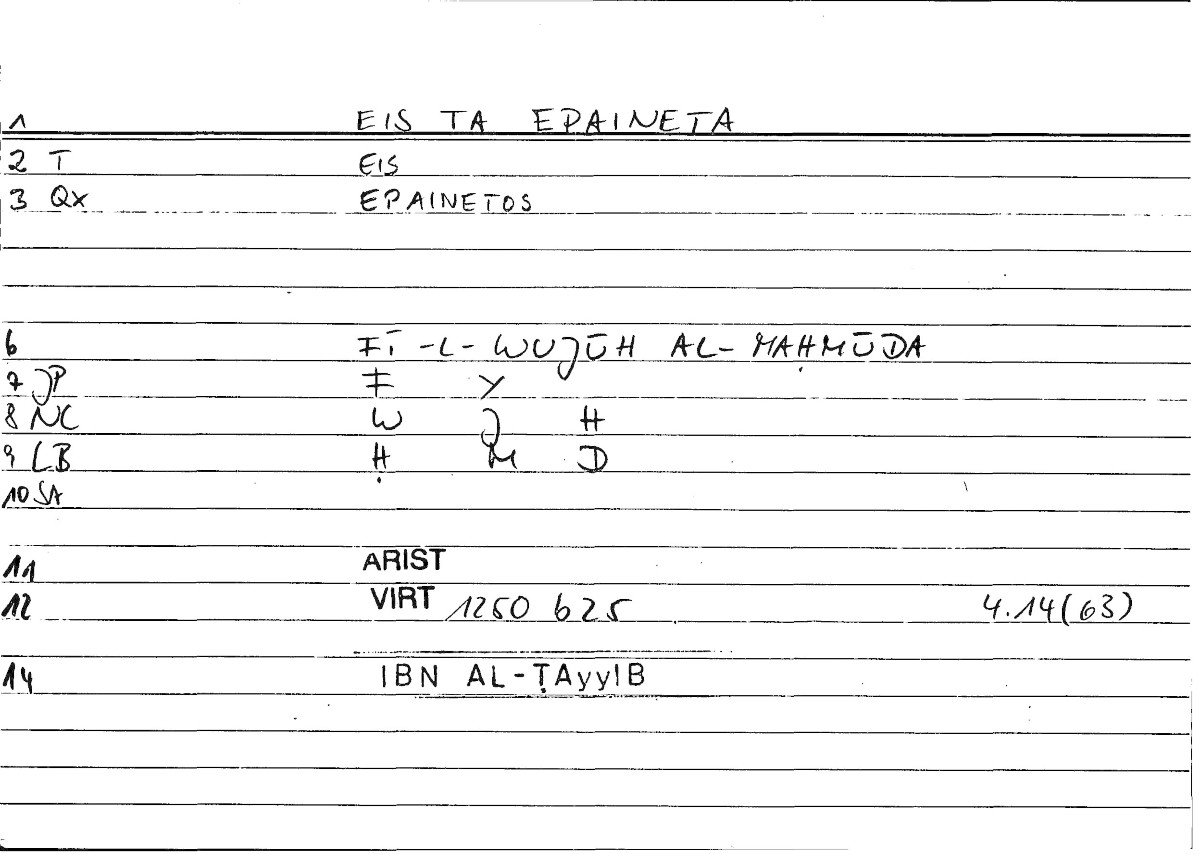 1 EIS TA EPAINETA
2 T EIS
3 Qx EPAINETOS
6 FĪ-L-WUJŪH AL-MAḤMŪDA
7 JP F Y
8 NC W J H
9 LB Ḥ M D
10 SA
11 ARIST
12 VIRT 1250 b25 4.14(63)
14 IBN AL-ṬAyyIB